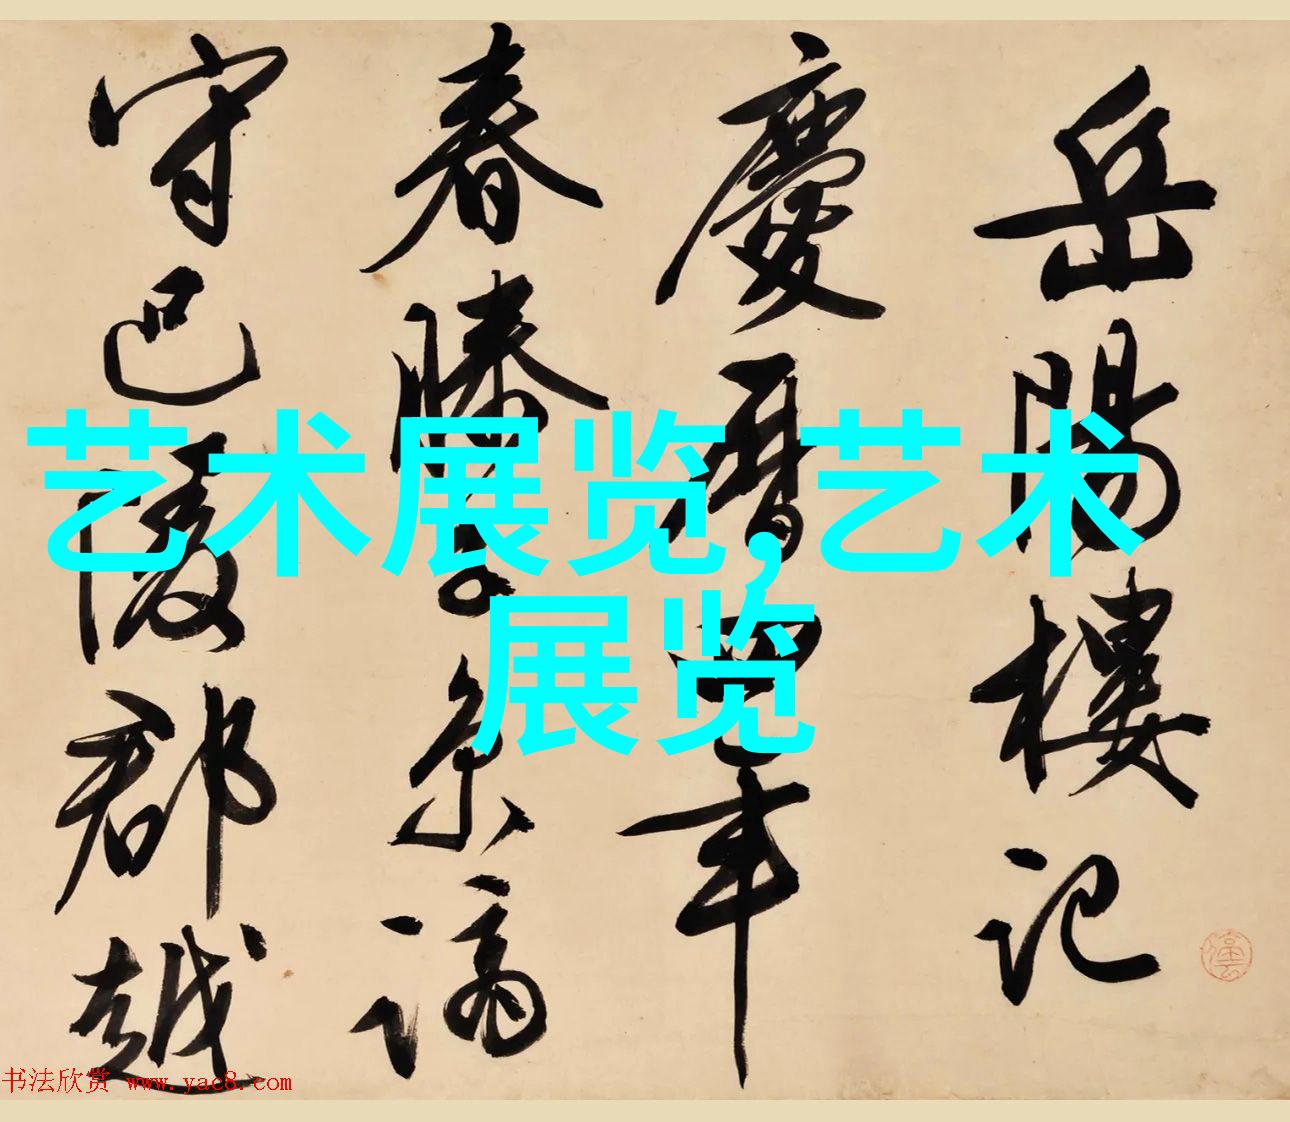 岳陽樓記
慶曆四年
春滕子京謫
守巴陵郡越
艺术展览,艺术
展览
书法欣赏 www.yac8.com